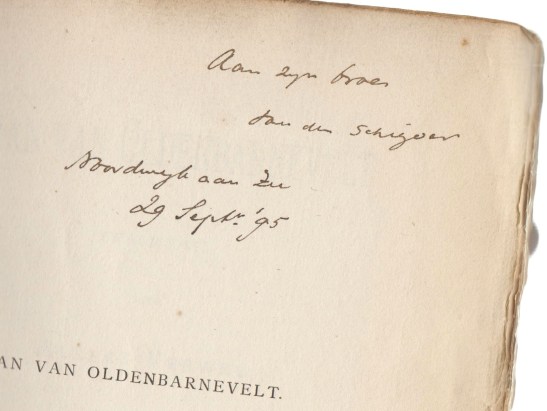 Aan zijn broer
van den Schrijver
Noordwijk aan Zee
29 Septr. '95
AN VAN OLDENBARNEVELT.